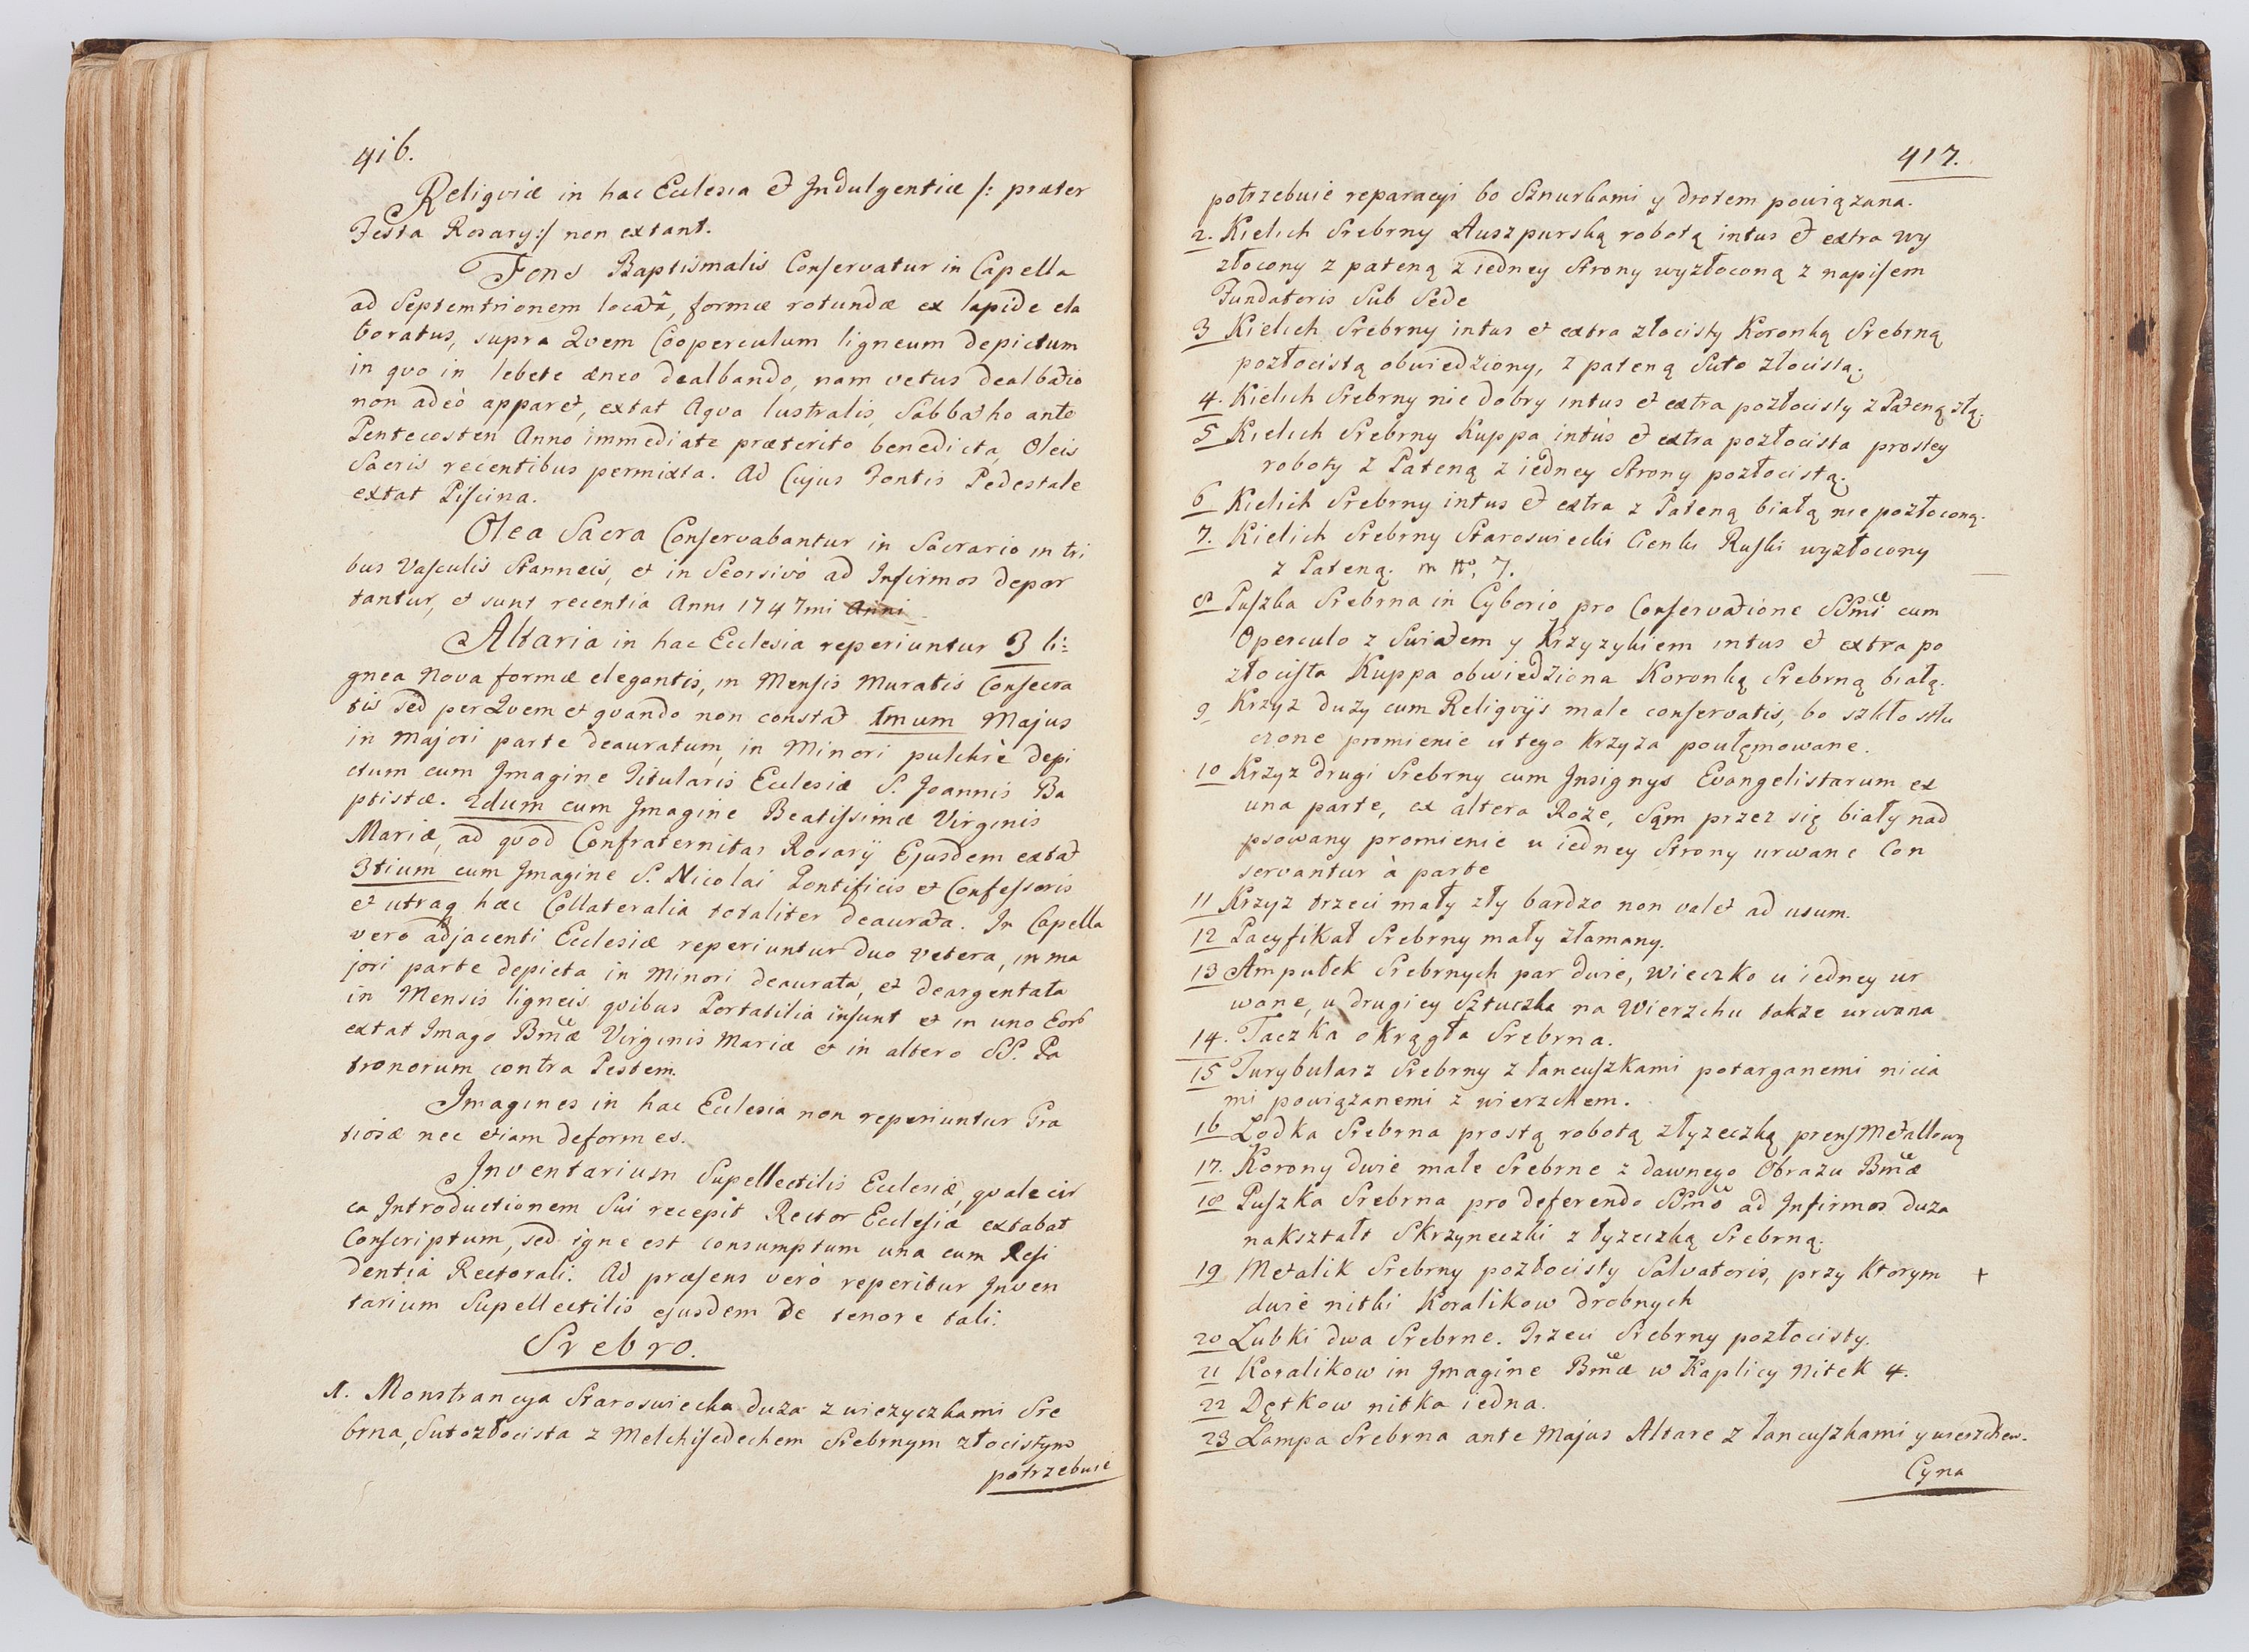 416.
Religviæ in hac Ecclesia et Indulgentiæ /: præter
Festa Rosary:/ non extant.
Fons Baptismalis Conservatur in Capella
ad Septemtrionem locata, formæ rotundæ ex lapide ela
boratus, supra Qvem Cooperculum ligneum depictum
in qvo in lebete æneo dealbando, nam vetus dealbatio
non adeò apparet, extat Aqva lustralis, Sabbatho ante
Pentecosten Anno immediate præterito benedicta, Oleis
Sacris recentibus permixta. Ad Cujus Fontis Pedestale
extat Piscina.
Olea Sacra Conservabantur in Sacrario in tri
bus Vasculis Stanneis, et in Seorsivo ad Infirmos depor
tantur, et sunt recentia Anni 1747mi Anni
Altaria in hac Ecclesia reperiuntur 3 li:
gnea Nova formæ elegantis, in Mensis Muratis Consecra
tis sed per Qvem et qvando non constat 1mum Majus
in Majori parte deauratum, in Minori pulchrè depi
ctum cum Imagine Titularis Ecclesiæ S. Joannis Ba
ptistæ. 2dum cum Imagine Beatissimæ Virginis
Mariæ, ad qvod Confraternitas Rosarÿ Ejusdem extat
3tium cum Imagine S. Nicolai Pontificis et Confessoris
et utraq hæc Collateralia totaliter deaurata. In Capella
vero adjacenti Ecclesiæ reperiuntur duo vetera, in ma
jori parte depicta in Minori deaurata, et deargentata
in Mensis ligneis qvibus Portatilia insunt et in uno Eorū
extat Imago Bmæ Virginis Mariæ et in altero SS. Pa
tronorum contra Pestem.
Imagines in hac Ecclesia non reperiuntur Gra
tiosæ nec etiam deformes.
Inventarium Supellectilis Ecclesiæ, qvale cir
ca Introductionem Sui recepit Rector Ecclesiæ extabat
Conscriptum, sed igne est consumptum una cum Resi
dentia Rectorali. Ad præsens verò reperitur Inven
tarium Supellectilis ejusdem de tenore tali.
Srebro.
1. Monstrancya Staroswiecka duza z wiezyczkami Sre
brna, Sutozłocista z Melchisedechem Srebrnym złocistym
potrzebuie
417.
potrzebuie reparacyi bo Sznurkami y drotem powiązana.
2. Kielich Srebrny Auszpurską robotą intus et extra wy
złocony z pateną z iedney Strony wyzłoconą z napisem
Fundatoris Sub Sede
3 Kielich Srebrny intus et extra złocisty Koronką Srebrną
pozłocistą obwiedziony, z pateną Suto złocistą.
4. Kielich Srebrny nie dobry intus et extra pozłocisty z Pateną złą.
5 Kielich Srebrny Kuppa intùs et extra pozłocista prostey
roboty z Pateną z iedney Strony pozłocistą.
6 Kielich Srebrny intus et extra z Pateną białą nie pozłoconą.
7. Kielich Srebrny Staroswiecki Cienki Ruski wyzłocony
z Pateną. in No. 7.
8 Puszka Srebrna in Cyborio pro Conservatione SSmi cum
Operculo z Swiatem y Krzyzykiem intus et extra po
złocista Kuppa obwiedziona Koronką Srebrną białą.
9 Krzyz duzy cum Religvÿs male conservatis, bo szkło stłu
czone promienie u tego Krzyza poułęmowane.
10 Krzyz drugi Srebrny cum Insignys Evangelistarum ex
una parte, ex altera Roże, Sąm przez się biały nad
psowany promienie u iedney Strony urwane Con
servantur à parte
11 Krzyz trzeci mały zły bardzo non valet ad usum.
12 Pacyfikał Srebrny mały złamany.
13 Ampułek Srebrnych par dwie, wieczko u iedney ur
wane, u drugiey Sztuczka na Wierzchu takze urwana
14. Taczka okrągła Srebrna.
15 Turybularz Srebrny z łancuszkami potarganemi nicia
mi powiązanemi z wierzchem.
16 Lodka Srebrna prostą robotą złyzeczką prens Metallową
17. Korony dwie małe Srebrne z dawnego Obrazu Bmæ
18 Puszka Srebrna pro deferendo SSmo ad Infirmos duza
nakształt Skrzyneczki z łyzeczką Srebrną.
19 Metalik Srebrny pozłocisty Salvatoris, przy Ktorym +
dwie nitki Koralikow drobnych
20 Lubki dwa Srebrne. Trzeci Srebrny pozłocisty.
21 Koralikow in Imagine Bmæ w Kaplicy Nitek 4.
22 Dętkow nitka iedna.
23 Lampa Srebrna ante Majus Altare z łancuszkami y wierzchem.
Cyna